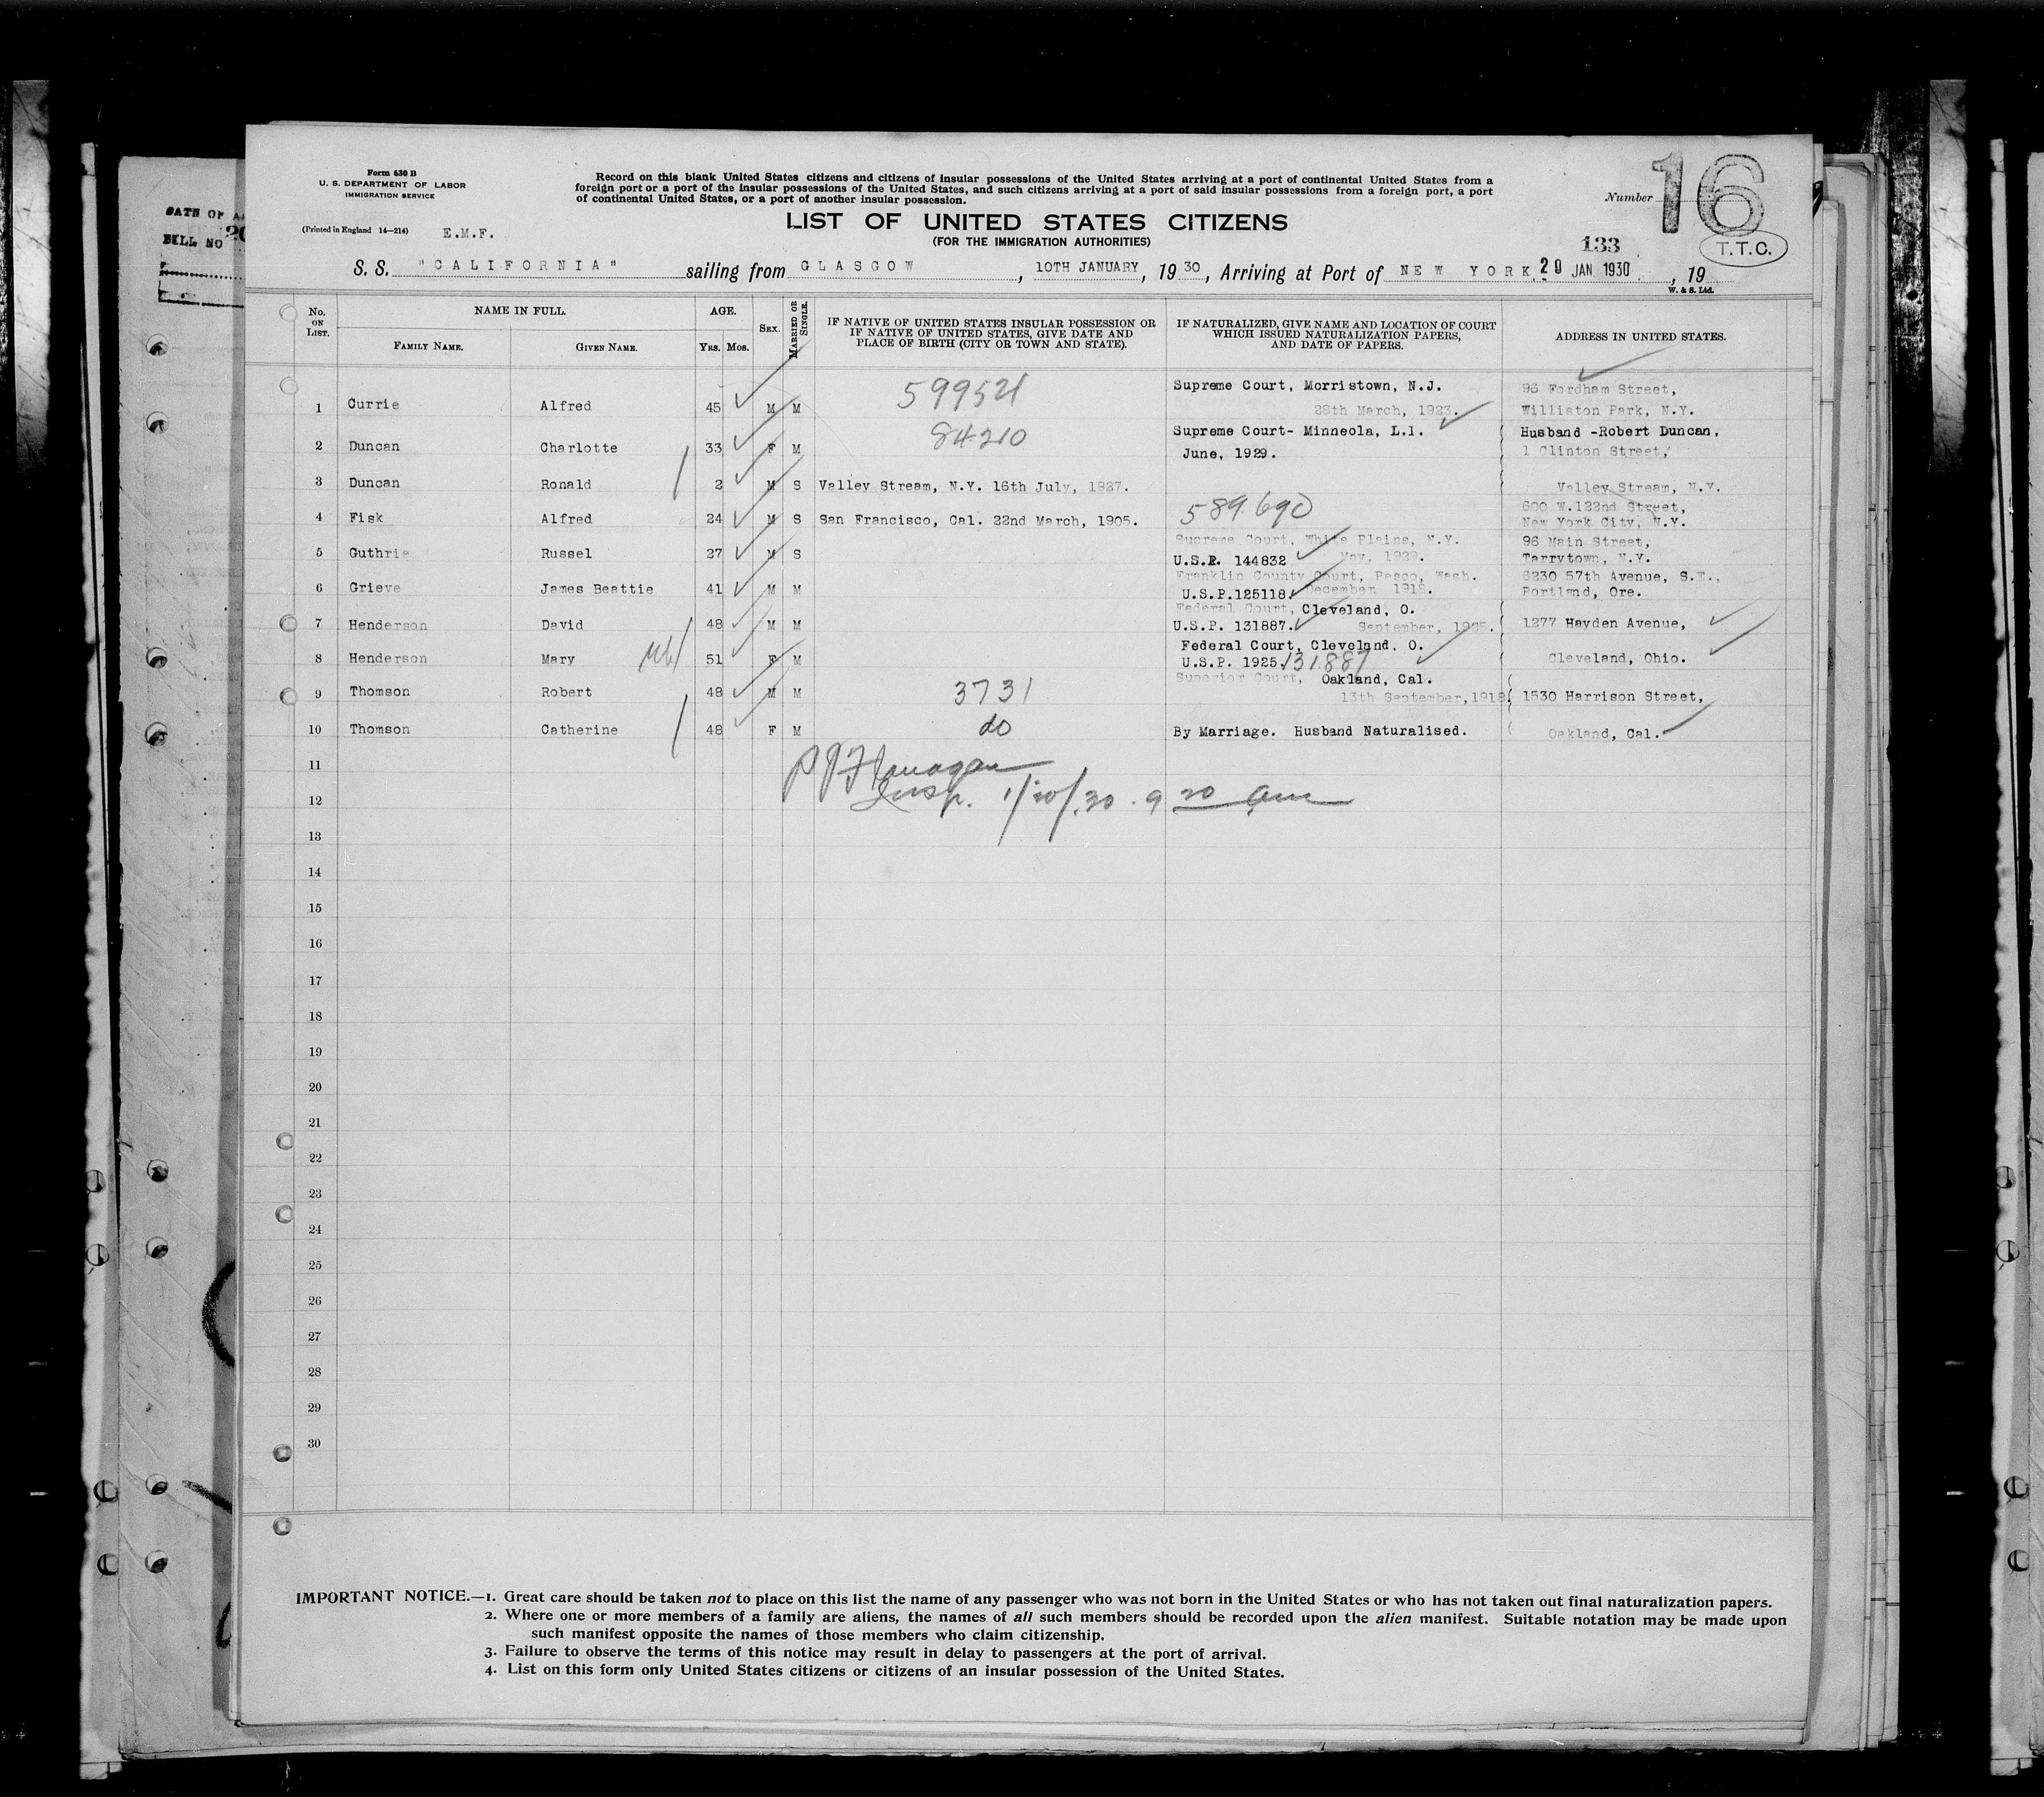 Form 630 B
U. S. DEPARTMENT OF LABOR
IMMIGRATION SERVICE
(Printed in England 14—214) E.M.F.
Record on this blank United States citizens and citizens of insular possessions of the United States arriving at a port of continental United States from a
foreign port or a port of the insular possessions of the United States, and such citizens arriving at a port of said insular possessions from a foreign port, a port
of continental United States, or a port of another insular possession.
Number 16
LIST OF UNITED STATES CITIZENS
(FOR THE IMMIGRATION AUTHORITIES)
133
T.T.C.
S. S. "CALIFORNIA" sailing from GLASGOW, 10TH JANUARY, 1930, Arriving at Port of NEW YORK. 20 JAN 1930, 19
W. & S. Ltd.
DATE OF
BILL NO 20
No. ON LIST.
NAME IN FULL.
FAMILY NAME. GIVEN NAME.
AGE.
YRS. MOS.
SEX.
MARRIED OR SINGLE.
IF NATIVE OF UNITED STATES INSULAR POSSESSION OR
IF NATIVE OF UNITED STATES, GIVE DATE AND
PLACE OF BIRTH (CITY OR TOWN AND STATE).
IF NATURALIZED, GIVE NAME AND LOCATION OF COURT
WHICH ISSUED NATURALIZATION PAPERS,
AND DATE OF PAPERS.
ADDRESS IN UNITED STATES.
1 Currie Alfred 45 M M 599521 Supreme Court, Morristown, N.J. 96 Fordham Street,
28th March, 1923. Williston Park, N.Y.
2 Duncan Charlotte 33 F M 84210 Supreme Court- Minneola, L.I. Husband -Robert Duncan,
June, 1929. 1 Clinton Street,
3 Duncan Ronald 2 M S Valley Stream, N.Y. 16th July, 1927. Valley Stream, N.Y.
4 Fisk Alfred 24 M S San Francisco, Cal. 22nd March, 1905. 589690 600 W.122nd Street,
New York City, N.Y.
5 Guthrie Russel 27 M S Supreme Court, White Plains, N.Y. 96 Main Street,
U.S.P. 144832 May, 1929. Tarrytown, N.Y.
6 Grieve James Beattie 41 M M Franklin County Court, Pasco, Wash. 6230 57th Avenue, S.E.,
U.S.P.125118. December 1918. Portland, Ore.
7 Henderson David 48 M M Federal Court, Cleveland, O. 1277 Hayden Avenue,
U.S.P. 131887. September, 1925.
8 Henderson Mary 51 F M Federal Court, Cleveland, O. Cleveland, Ohio.
U.S.P. 1925. 131887
9 Thomson Robert 48 M M 3731 Superior Court, Oakland, Cal.
13th September, 1918 1530 Harrison Street,
10 Thomson Catherine 48 F M do By Marriage. Husband Naturalised. Oakland, Cal.
11
P J Flanagan
12
Insp. 1/20/30. 9 20 am
13
14
15
16
17
18
19
20
21
22
23
24
25
26
27
28
29
30
IMPORTANT NOTICE.—1. Great care should be taken not to place on this list the name of any passenger who was not born in the United States or who has not taken out final naturalization papers.
2. Where one or more members of a family are aliens, the names of all such members should be recorded upon the alien manifest. Suitable notation may be made upon
such manifest opposite the names of those members who claim citizenship.
3. Failure to observe the terms of this notice may result in delay to passengers at the port of arrival.
4. List on this form only United States citizens or citizens of an insular possession of the United States.